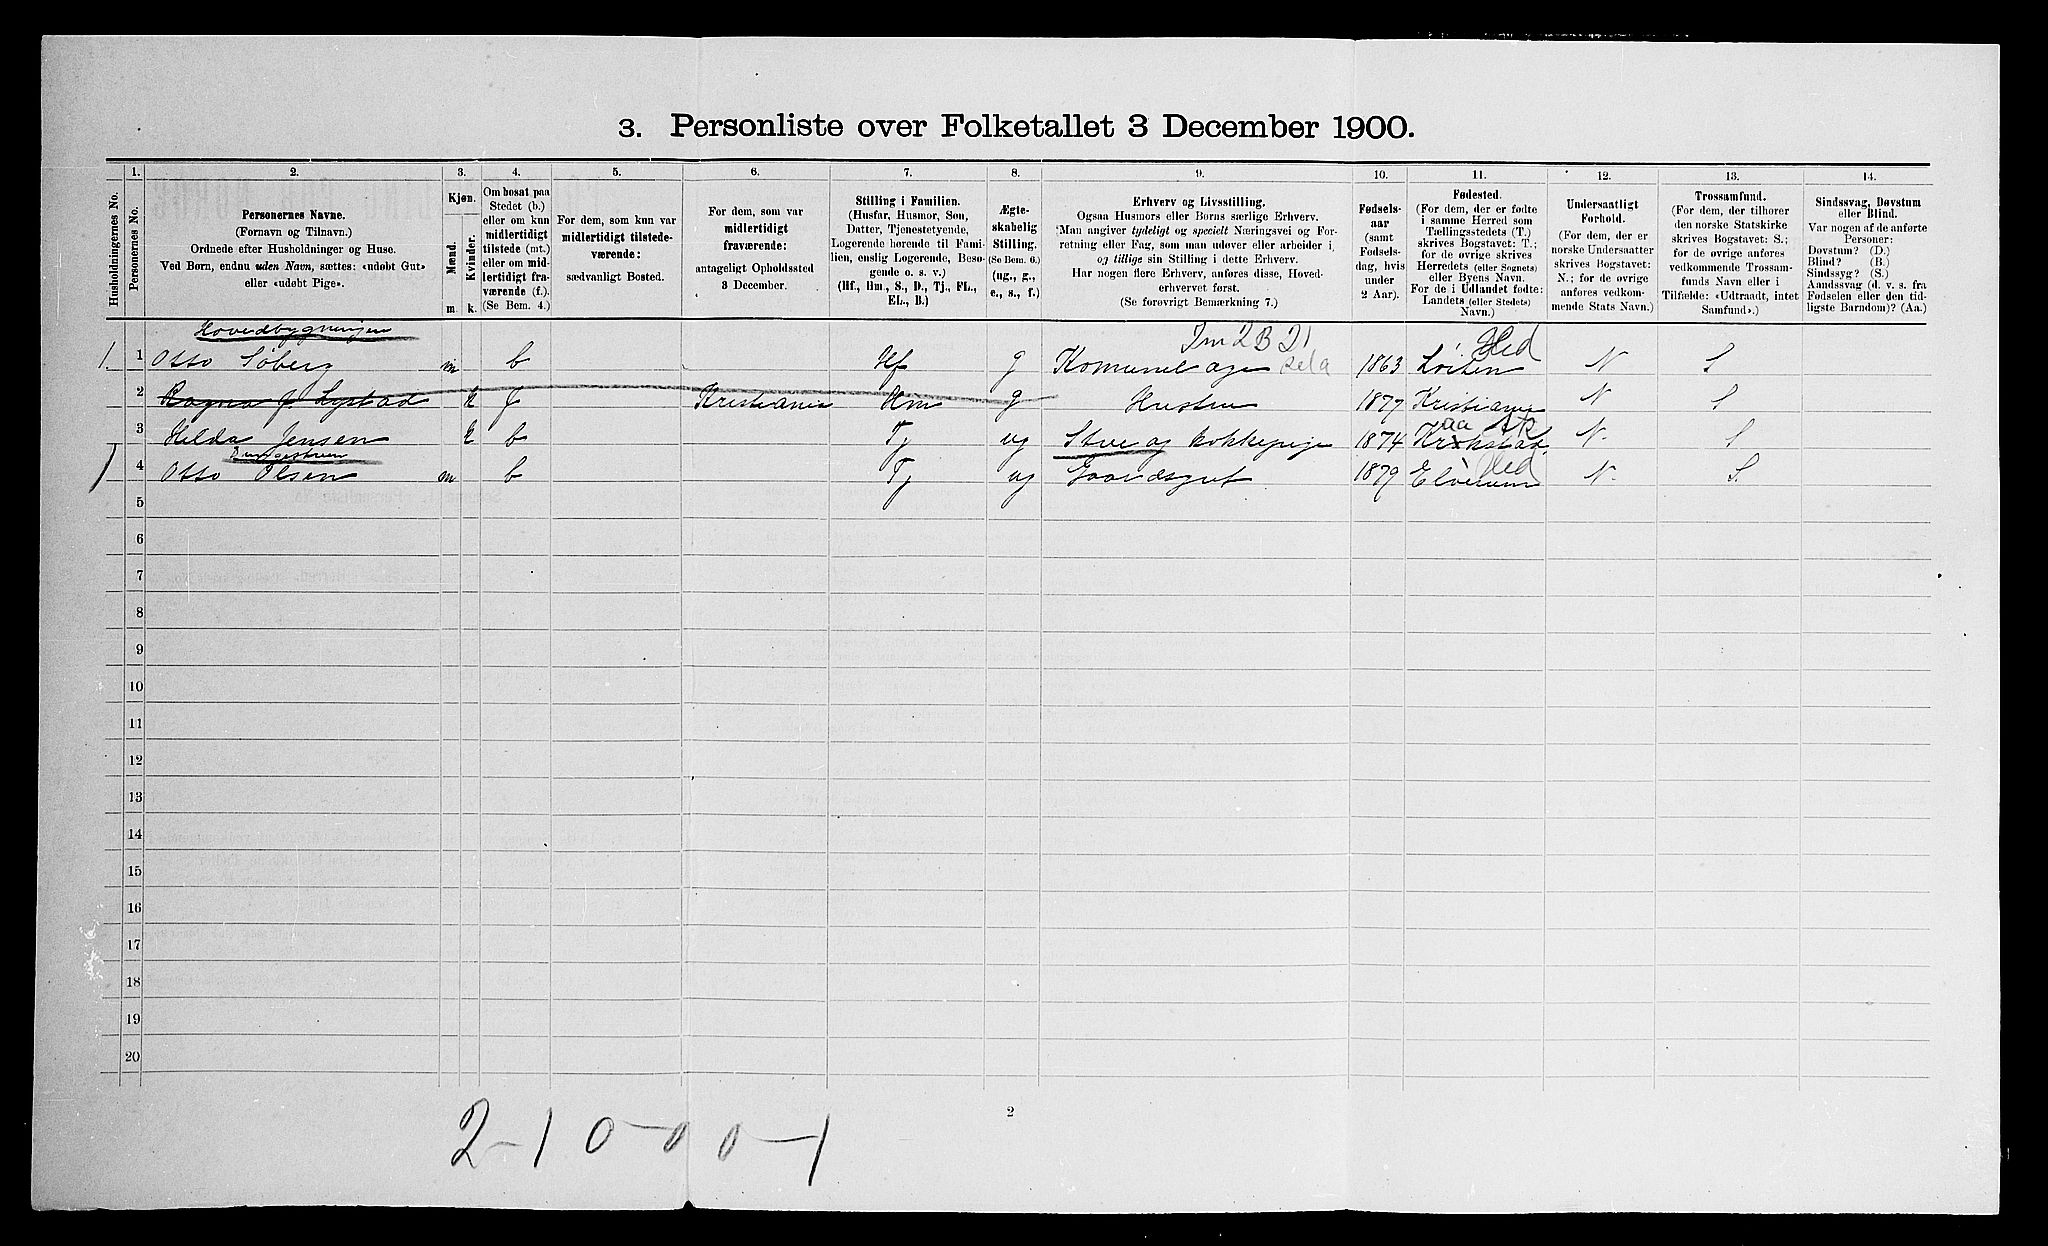 3. Personliste over Folketallet 3 December 1900.
Husholdningernes No.
1.
Personernes No.
2.
Personernes Navne.
(Fornavn og Tilnavn.)
Ordnede efter Husholdninger og Huse.
Ved Børn, endnu uden Navn, sættes: «udøbt Gut»
eller «udøbt Pige».
3.
Kjøn.
Mænd.
Kvinder.
m.
k.
4.
Om bosat paa
Stedet (b.)
eller om kun
midlertidigt
tilstede (mt.)
eller om mid-
lertidigt fra-
værende (f.).
(Se Bem. 4.)
5.
For dem, som kun var
midlertidigt tilstede-
værende:
sædvanligt Bosted.
6.
For dem, som var
midlertidigt
fraværende:
antageligt Opholdssted
3 December.
7.
Stilling i Familien.
(Husfar, Husmor, Søn,
Datter, Tjenestetyende,
Logerende hørende til Fami-
lien, enslig Logerende, Besø-
gende o. s. v.)
(Hf., Hm., S., D., Tj., FL.,
EL., B.)
8.
Ægte-
skabelig
Stilling.
(Se Bem. 6.)
(ug., g.,
e., s., f.)
9.
Erhverv og Livsstilling.
Ogsaa Husmors eller Børns særlige Erhverv.
Man angiver tydeligt og specielt Næringsvei og For-
retning eller Fag, som man udøver eller arbeider i,
og tillige sin Stilling i dette Erhverv.
Har nogen flere Erhverv, anføres disse, Hoved-
erhvervet først.
(Se forøvrigt Bemærkning 7.)
10.
Fødsels-
aar
(samt
Fødsels-
dag, hvis
under
2 Aar).
11.
Fødested.
(For dem, der er fødte
i samme Herred som
Tællingsstedets (T.)
skrives Bogstavet: T.;
for de øvrige skrives
Herredets (eller Sognets)
eller Byens Navn.
For de i Udlandet fødte:
Landets (eller Stedets)
Navn.)
12.
Undersaatligt
Forhold.
(For dem, der er
norske Undersaatter
skrives Bogstavet:
N.; for de øvrige
anføres vedkom-
mende Stats Navn.)
13.
Trossamfund.
(For dem, der tilhører
den norske Statskirke
skrives Bogstavet: S.;
for de øvrige anføres
vedkommende Trossam-
funds Navn eller i
Tilfælde: «Udtraadt, intet
Samfund».)
14.
Sindssvag, Døvstum
eller Blind.
Var nogen af de anførte
Personer:
Døvstum? (D.)
Blind? (B.)
Sindssyg? (S.)
Aandssvag (d. v. s. fra
Fødselen eller den tid-
ligste Barndom)? (Aa.)
Hovedbygningen
Hed
1. 1 Otto Söberg m b Hf g 1863 Löiten N S
2 Ragna J. Lystad k f Kristiania Hm g Hustru 1877 Kristiania N S
aa Ak
3 Hilda Jensen k b Tj ug Stue og kokkepige 1874 N. S
Hed
4 Otto Olsen m b Tj ug Gaardsgut 1879 Elverum N. S.
5
6
7
8
9
10
11
12
13
14
15
16
17
18
19
20
2
2-10-00-1